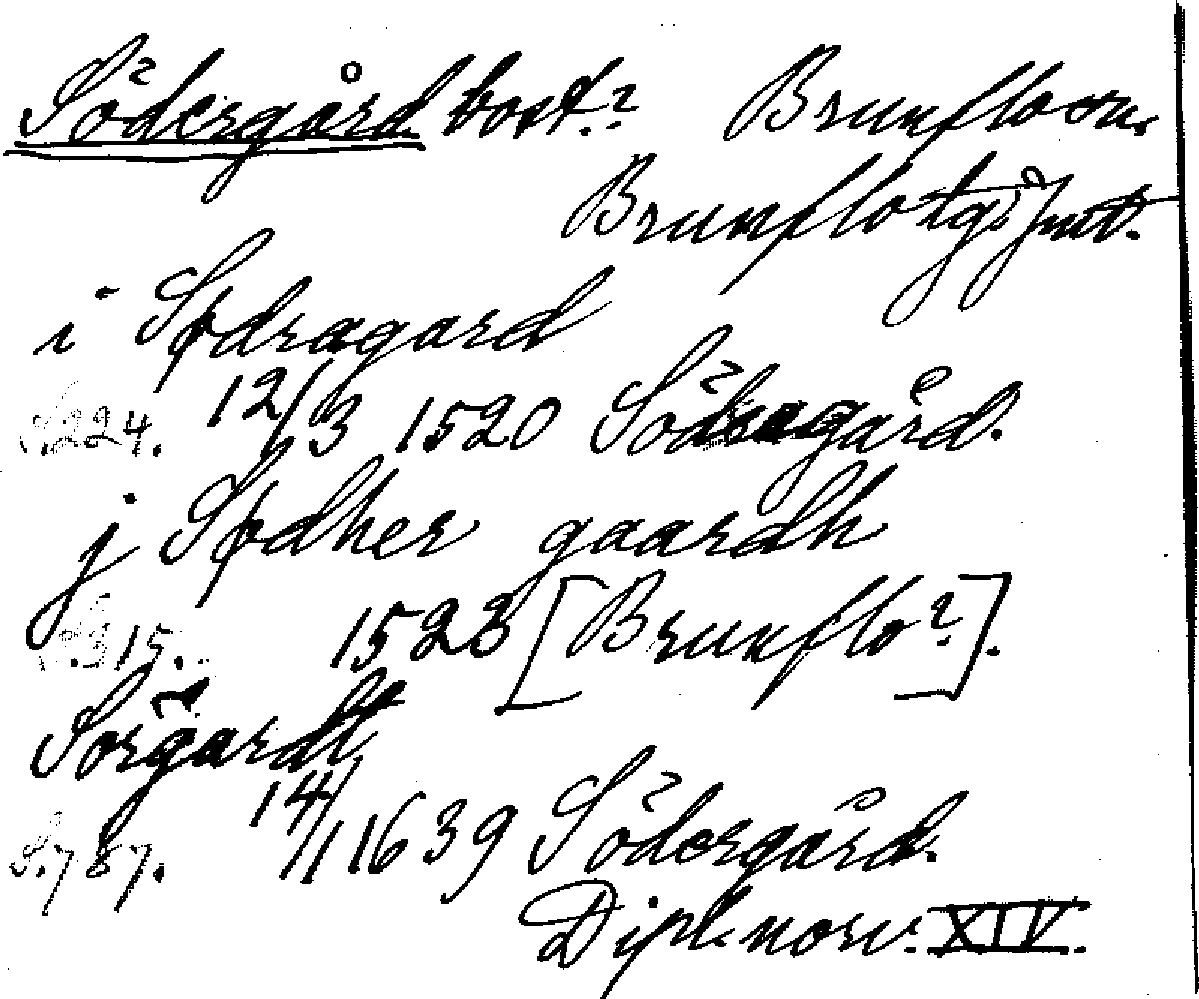 Södergård bost.? Brunflo sn.
Brunflo tgs Jmt.
i Sødragard
S.224. 12/3 1520 Södragård.
j Sødher gaardh
S.315. 1523 [Brunflo?].
Sörgårdh
S.787. 14/1 1639 Södergård.
Dipl. norv. XIV.